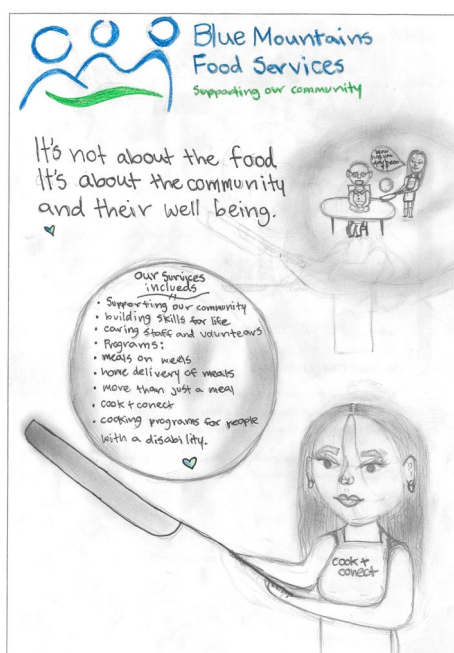 Blue Mountains
Food Services
Supporting our community
It's not about the food
It's about the community
and their well being.
our survices
inclueds
• Supporting our community
• building skills for life
• caring staff and voluntears
• Programs:
• meals on weels
• home delivery of meals
• more than just a meal
• cook + conect
• cooking programs for people
with a disability.
cook +
conect